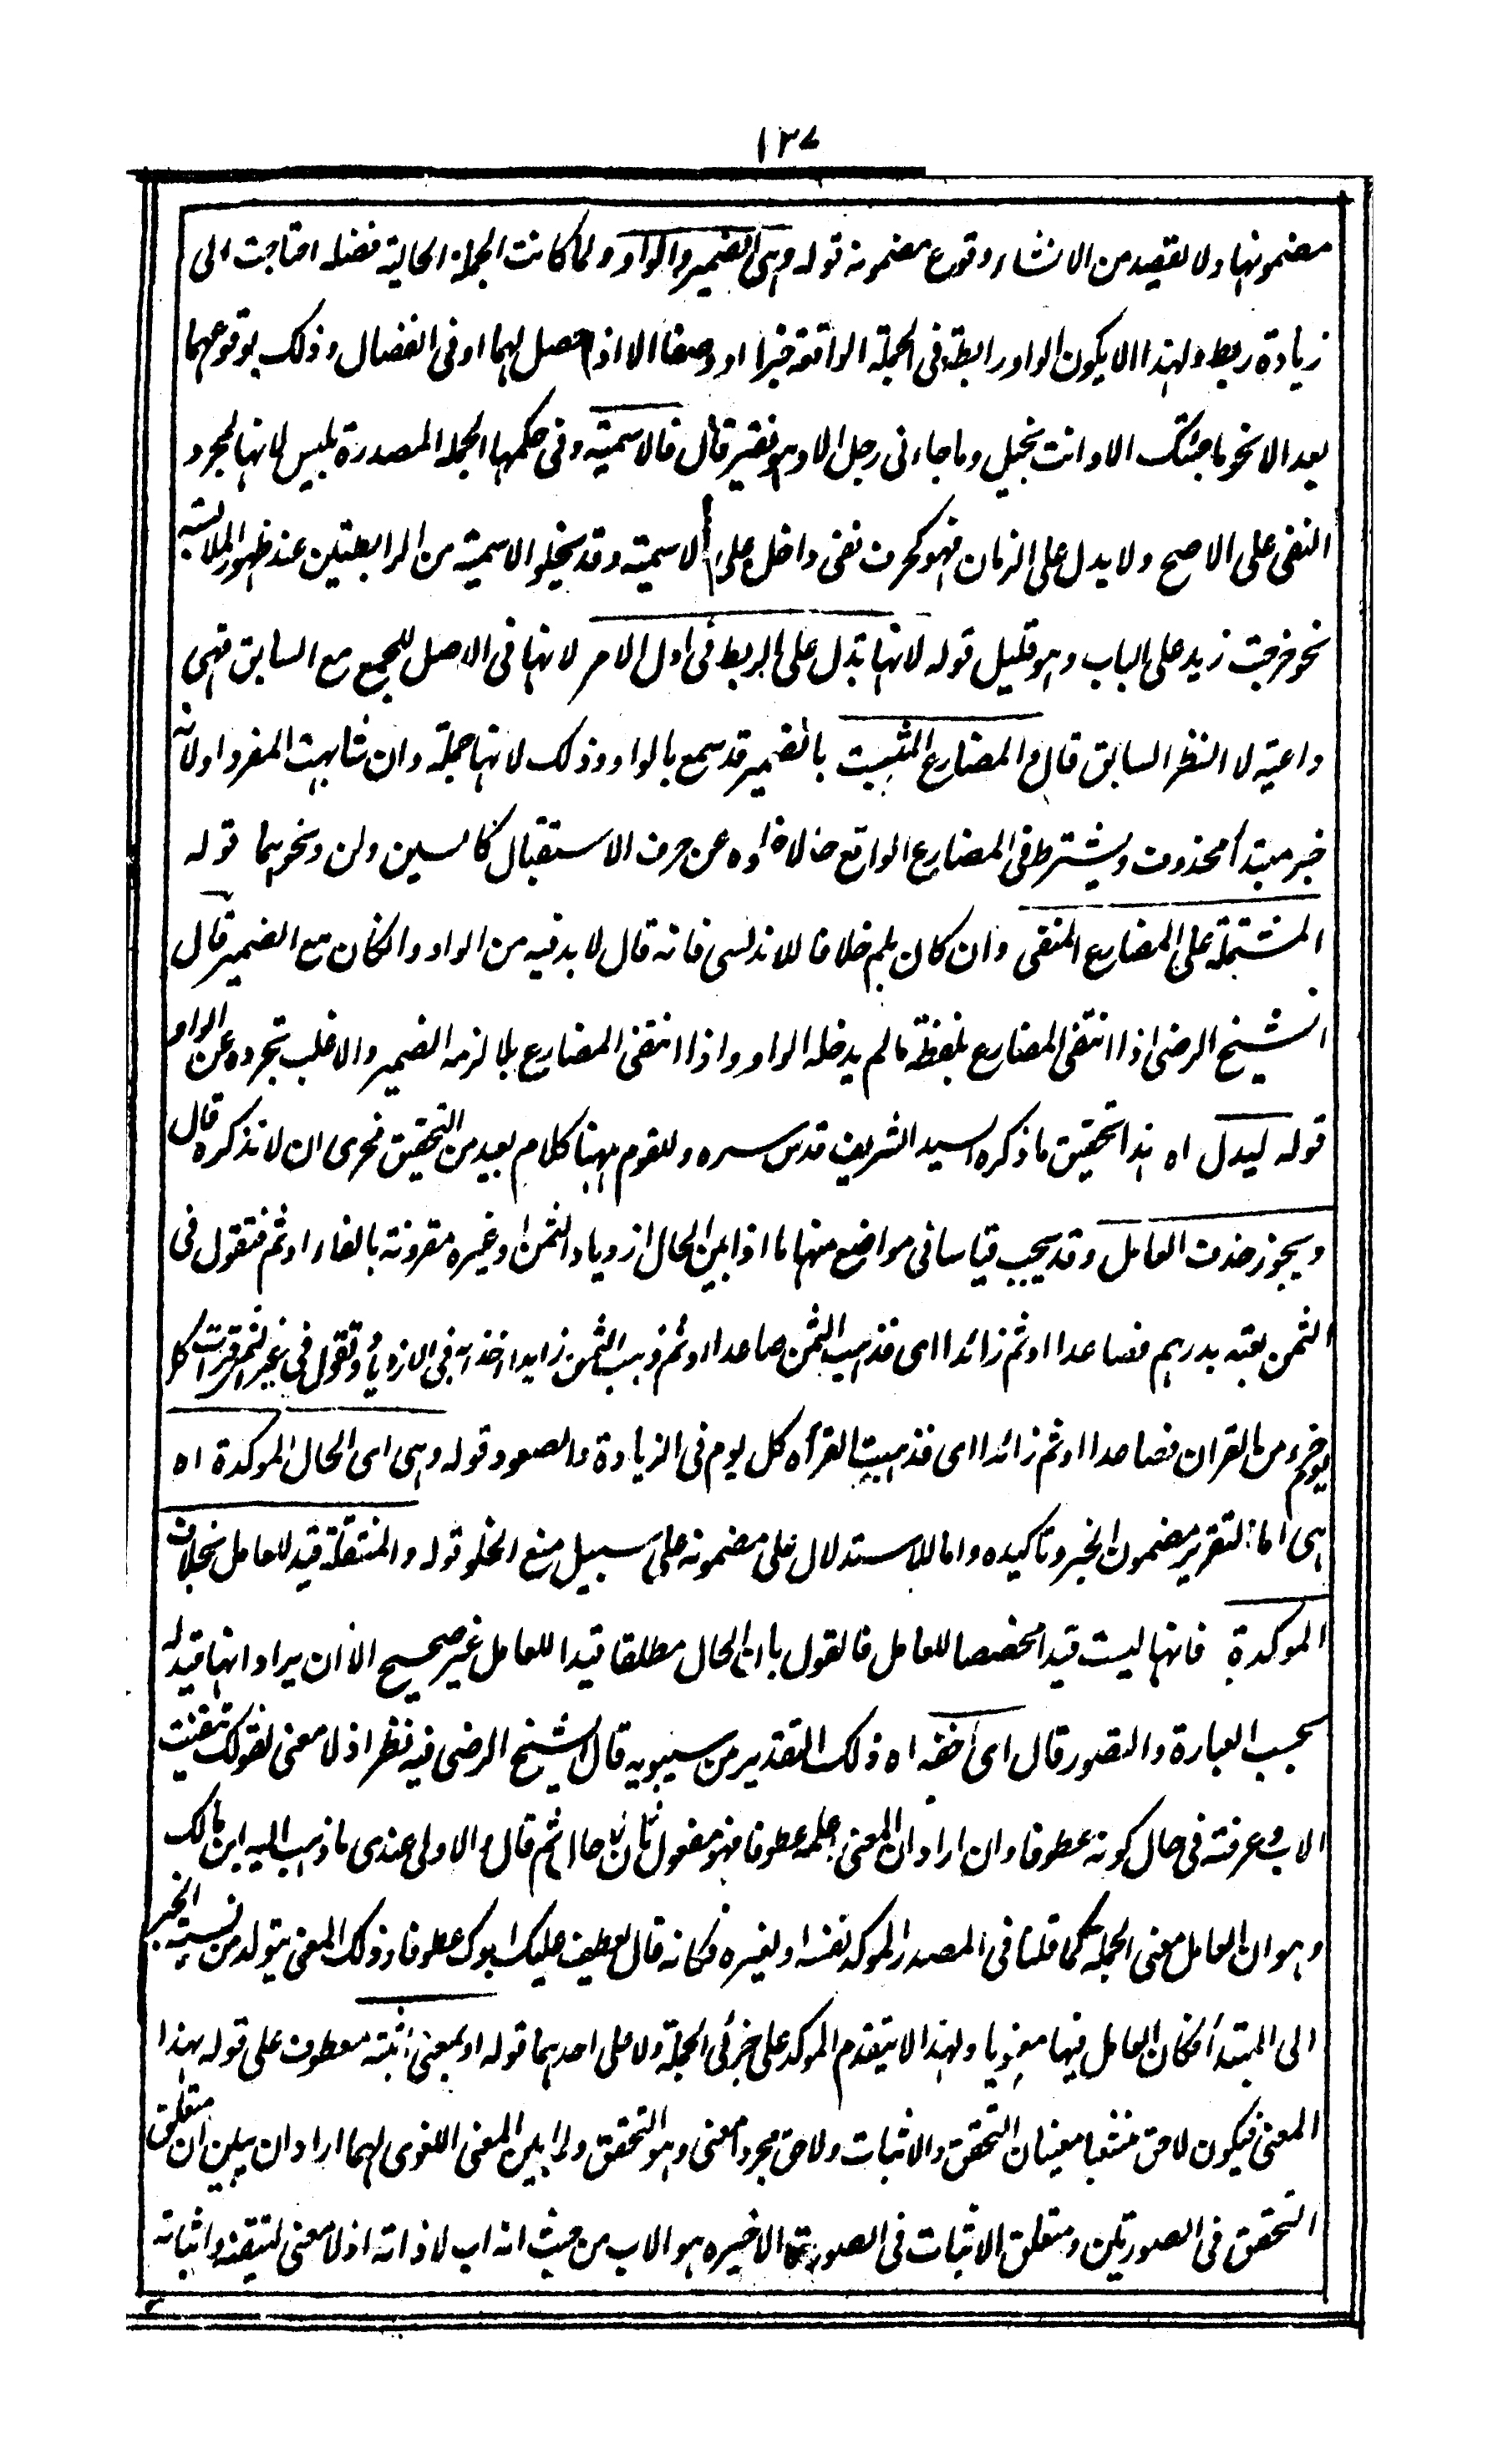 ١٣٧
مضمونها ولا يقصد من الانشاء وقوع مضمونه قوله وهى الضمير والواو ولما كانت الجملة الحالية فضله احتاجت الى
زيادة ربط ولهذا لا يكون الواو رابطة فى الجملة الواقعة خبرا او وصفا الا اذا حصل لهما او فى انفصال وذلك بوقوعهما
بعد الا نحو ما جئتك الا وانت بخيل وما جاءنى رجل الا وهو فقير قال فالاسمية وفى حكمها الجملة المصدرة بليس لانها لمجرد
النفى على الاصح ولا يدل على الزمان فهو كحرف نفى داخل على الاسمية وقد يخلو الاسمية من الرابطتين عند ظهور الملابسة
نحو خرجت زيد على الباب وهو قليل قوله لانها تدل على الربط فى اول الامر لانها فى الاصل للجمع مع السابق فهى
داعية لا النظر السابق قال والمضارع المثبت بالضمير قد سمع بالواو وذلك لانها جملة وان شابهت المفرد او لانه
خبر مبتدأ محذوف ويشترط فى المضارع الواقع حالا خلوه عن حرف الاستقبال كالسين ولن ونحوهما قوله
المشتملة على المضارع المنفى وان كان بلم خلافا للاندلسى فانه قال لا بد فيه من الواو وان كان مع الضمير قال
الشيخ الرضى اذا انتفى المضارع بلفظة ما لم يدخله الواو واذا انتفى المضارع بلا لزمه الضمير والاغلب تجرده عن الواو
قوله ليدل اه هذا تحقيق ما ذكره السيد الشريف قدس سره وللقوم ههنا كلام بعيد من التحقيق فحرى ان لا نذكره قال
ويجوز حذف العامل وقد يجب قياسا فى مواضع منها ما اذا بين الحال ازدياد الثمن او غيره مقرونة بالفاء او ثم فتقول فى
الثمن بعته بدرهم فصاعدا او ثم زائدا اى فذهب الثمن صاعدا او ثم ذهب الثمن زايدا اخذ اله فى الازدياد وتقول فى غير الثمن قرات كل
يوم جزء من القران فصاعدا او ثم زائدا اى فذهبت القراءة كل يوم فى الزيادة والصعود قوله وهى اى الحال الموكدة اه
هى اما لتقرير مضمون الخبر وتاكيده واما للاستدلال على مضمونه على سبيل منع الخلو قوله والمنتقلة قيد للعامل بخلاف
الموكدة فانها ليست قيدا مخصصا للعامل فالقول بان الحال مطلقا قيدا للعامل غير صحيح الا ان يراد انها قيد له
بحسب العبارة والتصور قال اى احقه اه ذلك التقدير من سيبويه قال الشيخ الرضى فيه نظر اذ لا معنى لقولك تيقنت
الاب وعرفته فى حال كونه عطوفا وان اراد ان المعنى اعلمه عطوفا فهو مفعول ثان لا حال ثم قال والاولى عندى ما ذهب اليه ابن مالك
وهو ان العامل معنى الجملة كما قلنا فى المصدر الموكد لنفسه او لغيره فكانه قال يعطف عليك ابوك عطوفا وذلك المعنى يتولد من نسبة الخبر
الى المبتدأ فكان العامل فيها معنويا ولهذا لا يتقدم الموكد على جزئى الجملة ولا على احدهما قوله او بمعنى اثبته معطوف على قوله بهذا
المعنى فيكون لاحق متشعبا معنيان التحقق والاثبات ولاحق مجردا معنى وهو التحقق ولما بين المعنى اللغوى لهما اراد ان يبين ان متعلق
التحقق فى الصورتين ومتعلق الاثبات فى الصورة الاخيره هو الاب من حيث انه اب لا ذاته اذ لا معنى لتيقنه واثباته